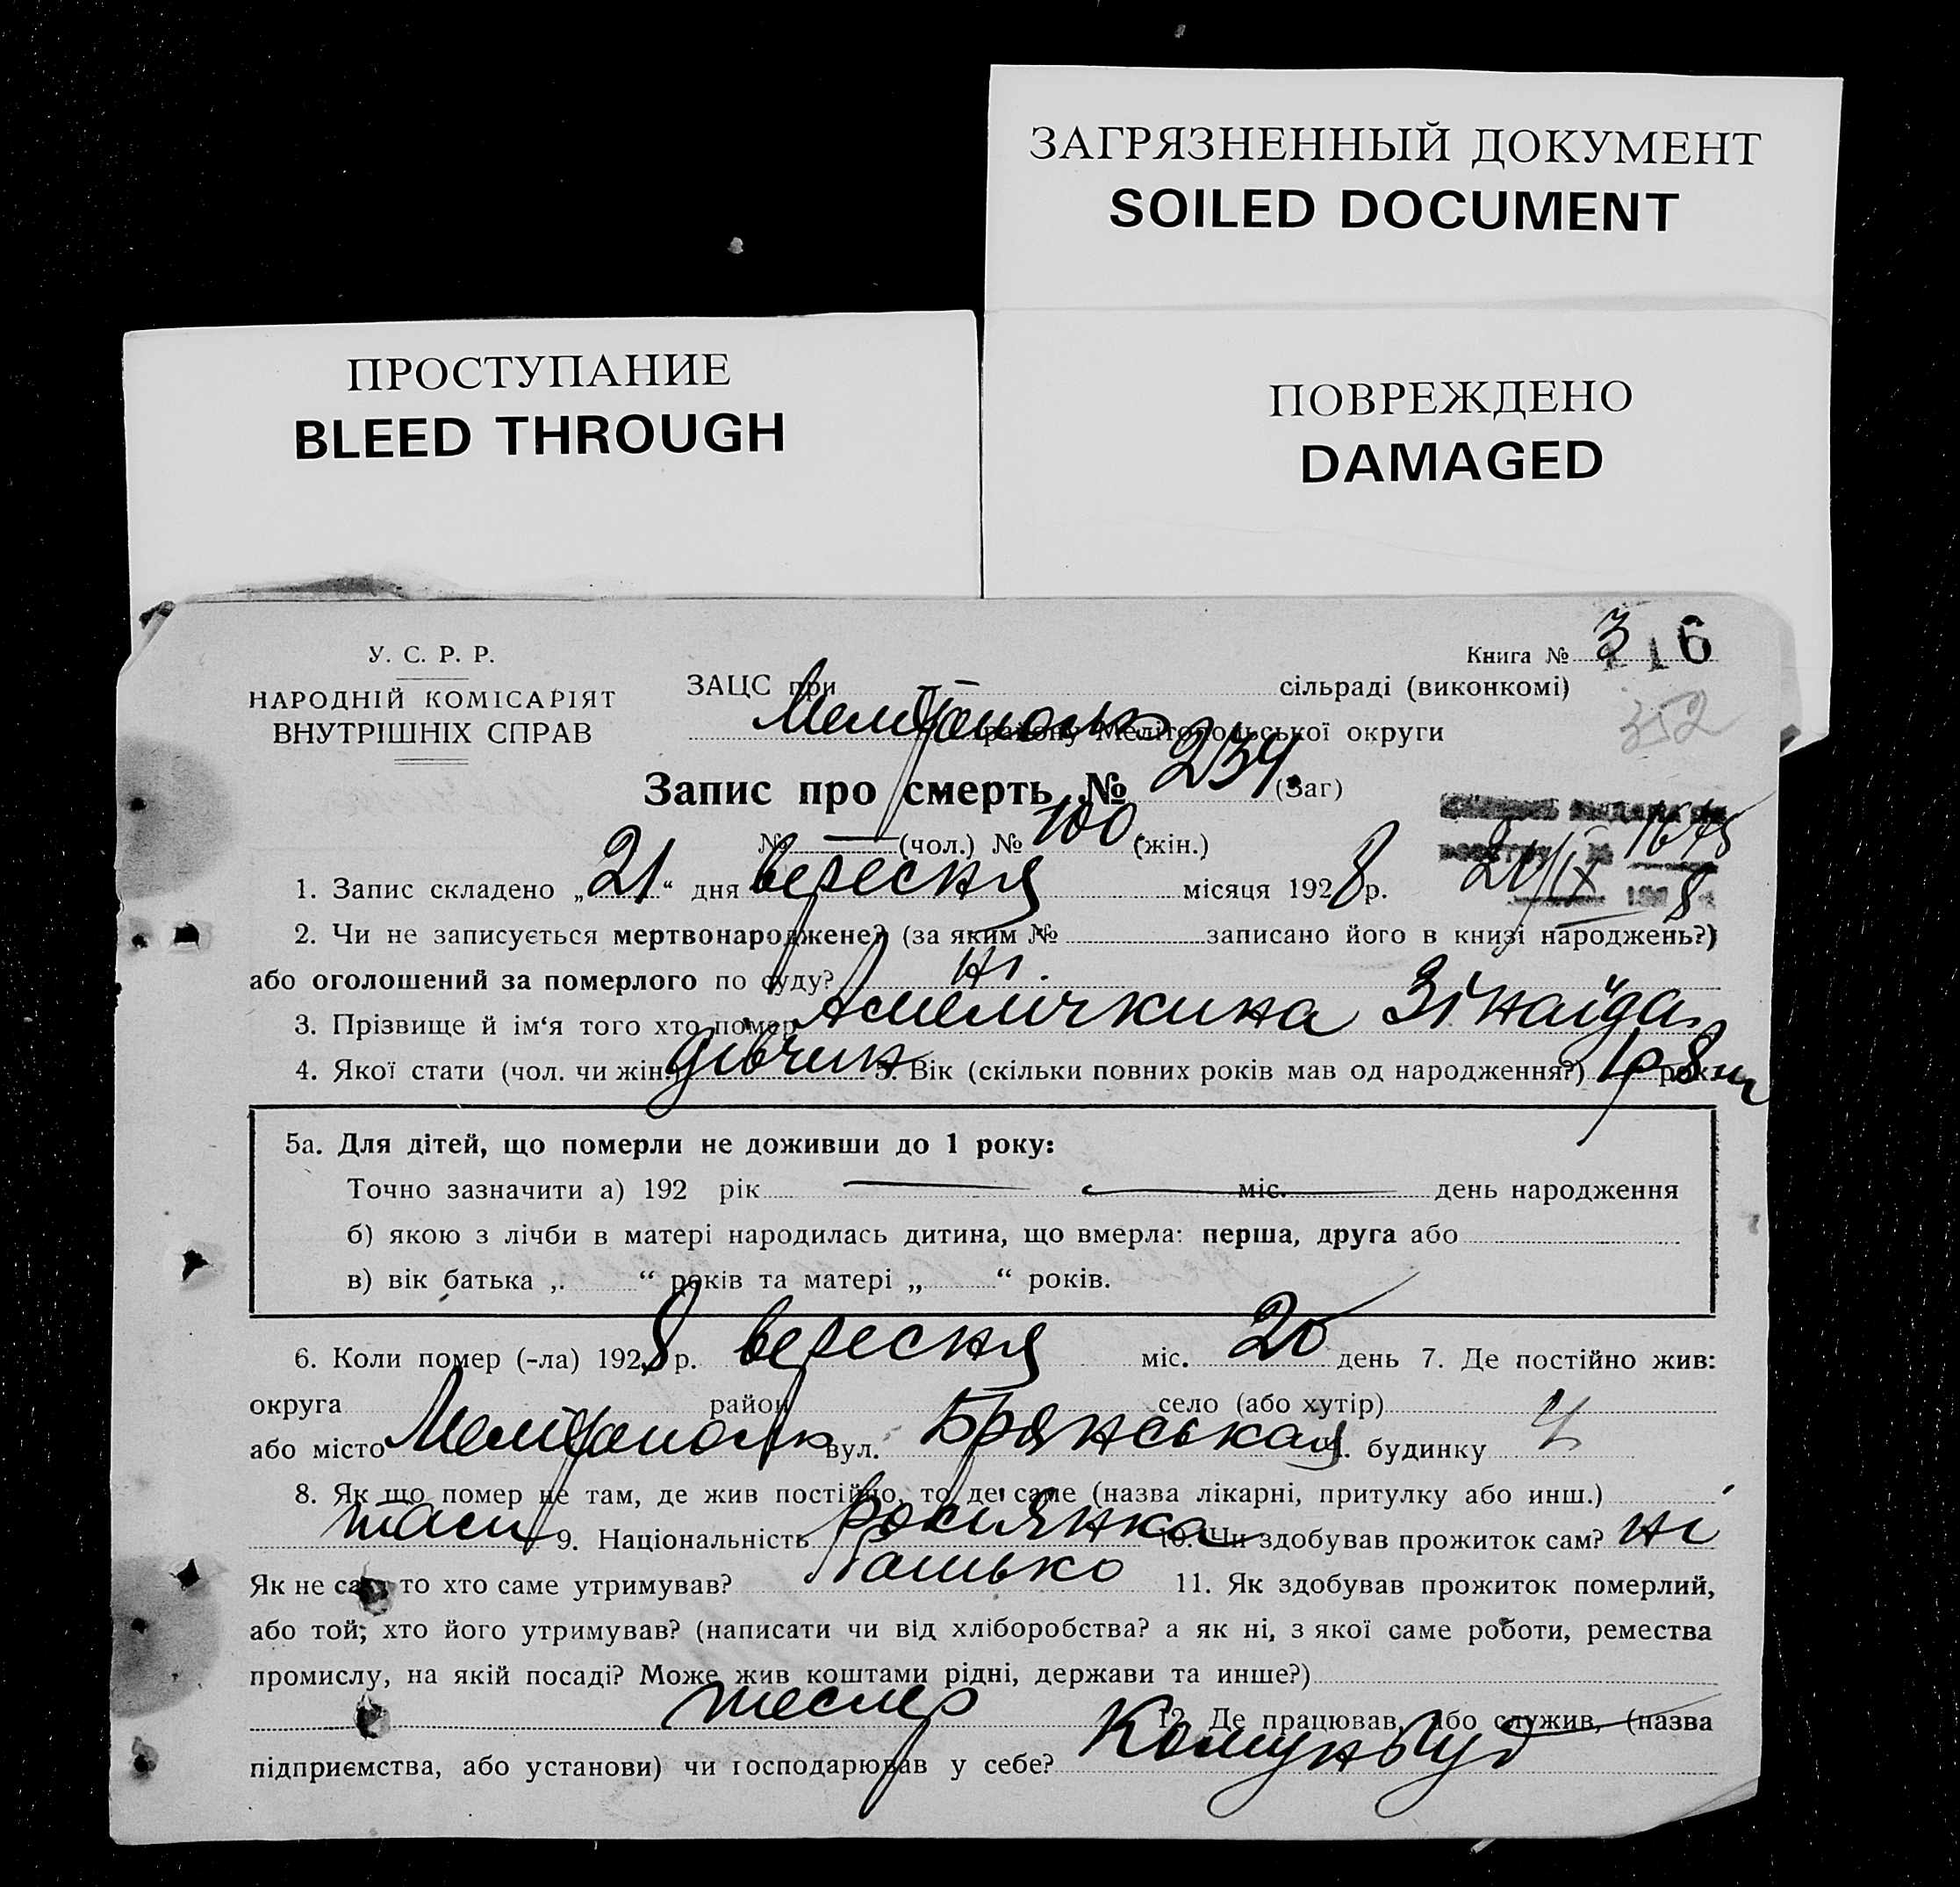 ЗАГРЯЗНЕННЫЙ ДОКУМЕНТ
SOILED DOCUMENT
ПРОСТУПАНИЕ
BLEED THROUGH
ПОВРЕЖДЕНО
DAMAGED
У. С. Р. Р.
НАРОДНІЙ КОМІСАРІЯТ
ВНУТРІШНІХ СПРАВ
Книга № 3 116
352
ЗАЦС при сільраді (виконкомі)
Мелітополь району Мелітопольської округи
Запис про смерть № 234 (Заг)
№ — (чол.) № 100 (жін.)
1. Запис складено „21“ дня вересня місяця 1928 р.
21/IX 8
2. Чи не записується мертвонароджене? (за яким № записано його в книзі народжень?)
або оголошений за померлого по суду? Ні.
3. Прізвище й ім‘я того хто помер Амеличкина Зінаїда
4. Якої стати (чол. чи жін.) дівчин 5. Вік (скільки повних років мав од народження?) 1р 8 м рок.
5а. Для дітей, що померли не доживши до 1 року:
Точно зазначити а) 192 рік — міс. — день народження
б) якою з лічби в матері народилась дитина, що вмерла: перша, друга або
в) вік батька „ “ років та матері „ “ років.
6. Коли помер (-ла) 1928 р. вересня міс. 20 день 7. Де постійно жив:
округа район село (або хутір)
або місто Мелітополь вул. Брянськая ч. будинку 4
8. Як що помер не там, де жив постійно, то де саме (назва лікарні, притулку або инш.)
там 9. Національність росиянка 10. Чи здобував прожиток сам? Ні
Як не сам то хто саме утримував? Батько 11. Як здобував прожиток померлий,
або той; хто його утримував? (написати чи від хліборобства? а як ні, з якої саме роботи, ремества
промислу, на якій посаді? Може жив коштами рідні, держави та инше?)
тесляр 12. Де працював, або служив, (назва
підприємства, або установи) чи господарював у себе? Комунбуд